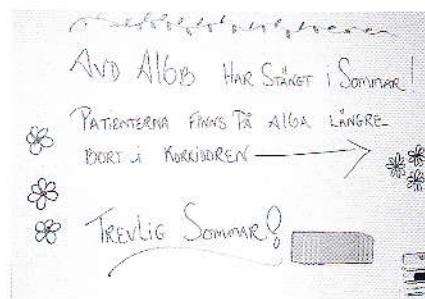 AVD A16B HAR STÄNGT i SOMMAR!
PATIENTERNA FINNS PÅ A16A LÄNGRE
BORT i KORRIDOREN
TREVLIG SOMMAR!